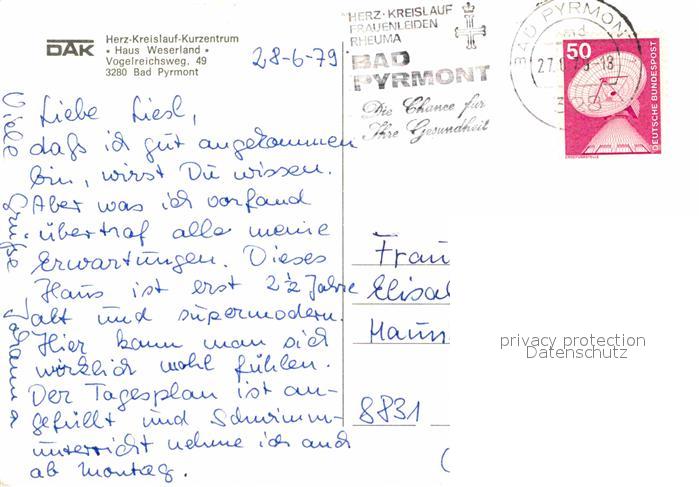 DAK
Herz-Kreislauf-Kurzentrum
• Haus Weserland •
Vogelreichsweg, 49
3280 Bad Pyrmont
28-6-79
HERZ-KREISLAUF
FRAUENLEIDEN
RHEUMA
BAD
PYRMONT
Die Chance für
Ihre Gesundheit
BAD PYRMONT
50
DEUTSCHE BUNDESPOST
Liebe Liesl,
daß ich gut angekommen
bin, wirst Du wissen.
Aber was ich vorfand
übertraf alle meine
Erwartungen. Dieses
Haus ist erst 2½ Jahre
alt und supermodern.
Hier kann man sich
wirklich wohl fühlen.
Der Tagesplan ist an-
gefüllt und Schwimm-
unterricht nehme ich auch
ab Montag.
Viele Grüße Johanna
Frau
Elisab
Maun
8831
privacy protection
Datenschutz